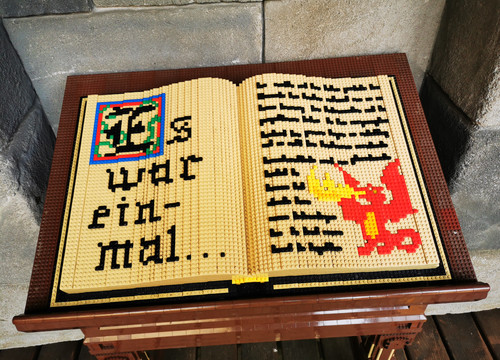 Es
war
ein-
mal...